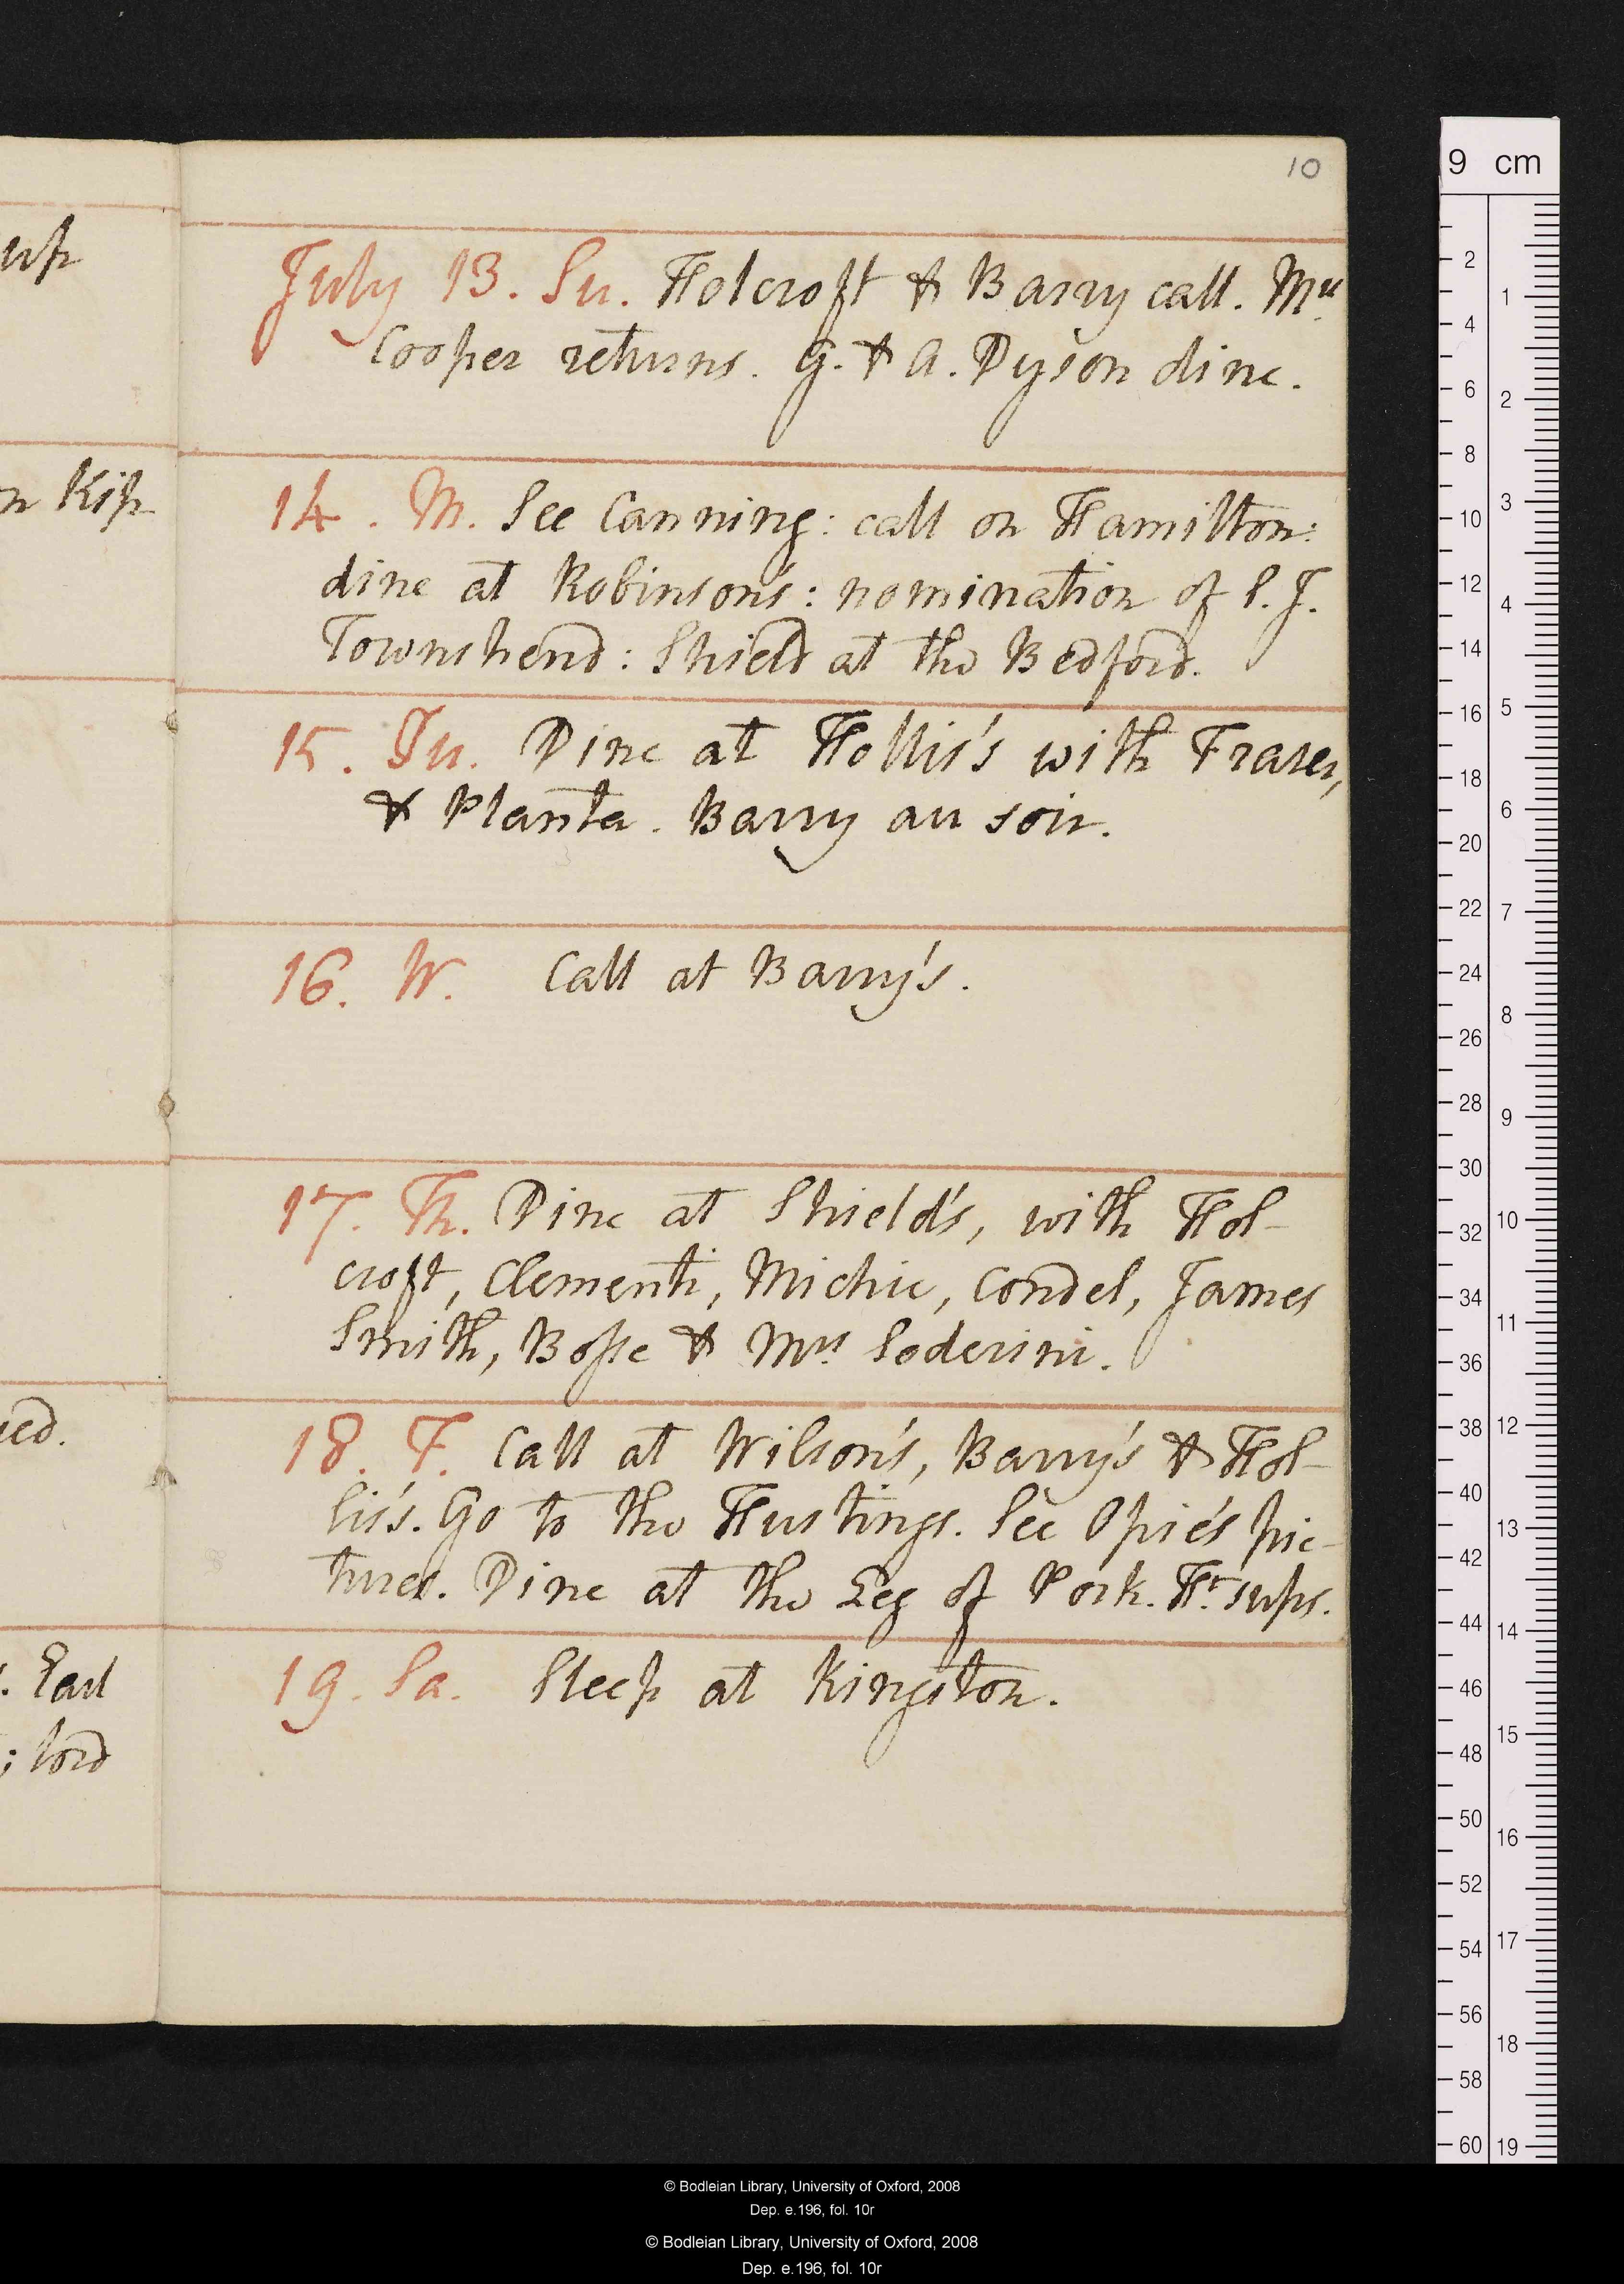 10
July 13. Su. Holcroft & Barry call. Mrs
Cooper returns. G. & A. Dyson dine.
14. M. See Canning: call on Hamilton:
dine at Robinson's: nomination of S. J.
Townshend: Shield at the Bedford.
15. Tu. Dine at Hollis's with Fraser,
& Planta. Barry au soir.
16. W. Call at Barry's.
17. Th. Dine at Shield's, with Hol-
croft, Clementi, Michie, Condel, James
Smith, Bosse & Mrs Soderini.
18. F. Call at Wilson's, Barry's & Hol-
lis's. Go to the Hustings. See Opie's pic-
tures. Dine at the Leg of Pork. Ht sups.
19. Sa. Sleep at Kingston.
up
n Kip
ued.
. Earl
; lord
9 cm
2
4
6
8
10
12
14
16
18
20
22
24
26
28
30
32
34
36
38
40
42
44
46
48
50
52
54
56
58
60
1
2
3
4
5
6
7
8
9
10
11
12
13
14
15
16
17
18
19
© Bodleian Library, University of Oxford, 2008
Dep. e.196, fol. 10r
© Bodleian Library, University of Oxford, 2008
Dep. e.196, fol. 10r